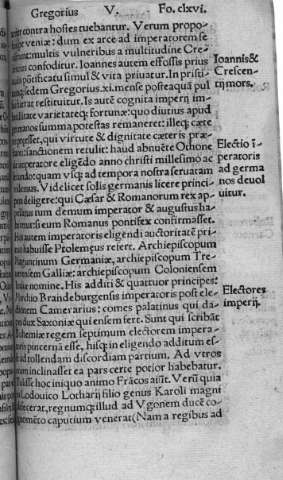 Gregorius V. Fo. clxvi.
contra hostes tuebantur. Verum propo-
veniæ: dum ex arce ad imperatorem se
multis vulneribus a multitudine Cre-
confoditur. Ioannes autem effossis prius
pōtificatu simul & vita priuatur. In pristi-
sedem Gregorius.xi.mense postea quā pul
restituitur. Is autē cognita imperij im-
varietateq; fortunæ: quo diutius apud
germanos summa potestas remaneret: illeq; cæte
esset, qui virtute & dignitate cæteris præ-
sanctionem retulit: haud abnuēte Othone
imperatore eligēdo anno christi millesimo ac
quam vsq; ad tempora nostra seruatam
Videlicet solis germanis licere princi-
deligere: qui Cæsar & Romanorum rex ap-
tum demum imperator & augustus ha-
si eum Romanus pontifex confirmasset.
autem imperatoris eligēdi auctoritatē pri-
habuisse Ptolemęus refert. Archiepiscopum
Germaniæ, archiepiscopum Tre-
Galliæ: archiepiscopum Coloniensem
nomine. His additi & quattuor principes:
Brandeburgensis imperatoris post ele-
Camerarius: comes palatinus qui da-
Saxoniæ qui ensem fert. Sunt qui scribāt
regem septimum electorem impera-
esse, hisq; in eligendo additum es-
ad tollendam discordiam partium. Ad vtros
inclinasset ea pars certe potior habebatur.
hoc iniquo animo Frācos aiūt. Verū quia
Lodouico Lotharij filio genus Karoli magni
regnumq; illud ad Vgonem ducē co-
cognomēto caputium venerat (Nam a regibus ad
Ioannis &
Crescen-
tij mors.
Electio ī-
peratoris
ad germa
nos deuol
uitur.
Electores
imperij.